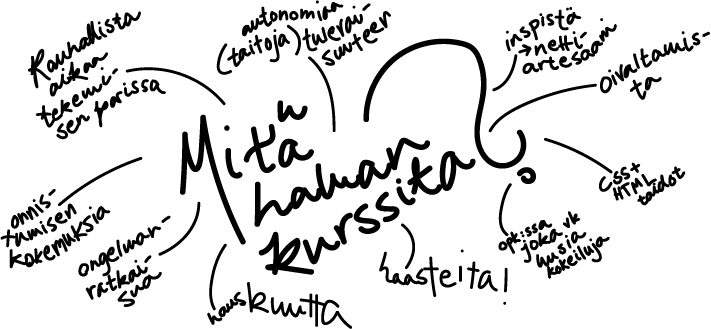 Mitä
haluan
kurssilta?
Rauhallista
aikaa
tekemi-
sen parissa
autonomiaa
(taitoja) tulevai-
suuteen
inspistä
→ netti-
artesaani
oivaltamis-
ta
CSS+
HTML
taidot
opk:ssa
joka vk
uusia
kokeiluja
haasteita!
hauskuutta
ongelman-
ratkai-
sua
onnis-
tumisen
kokemuksia